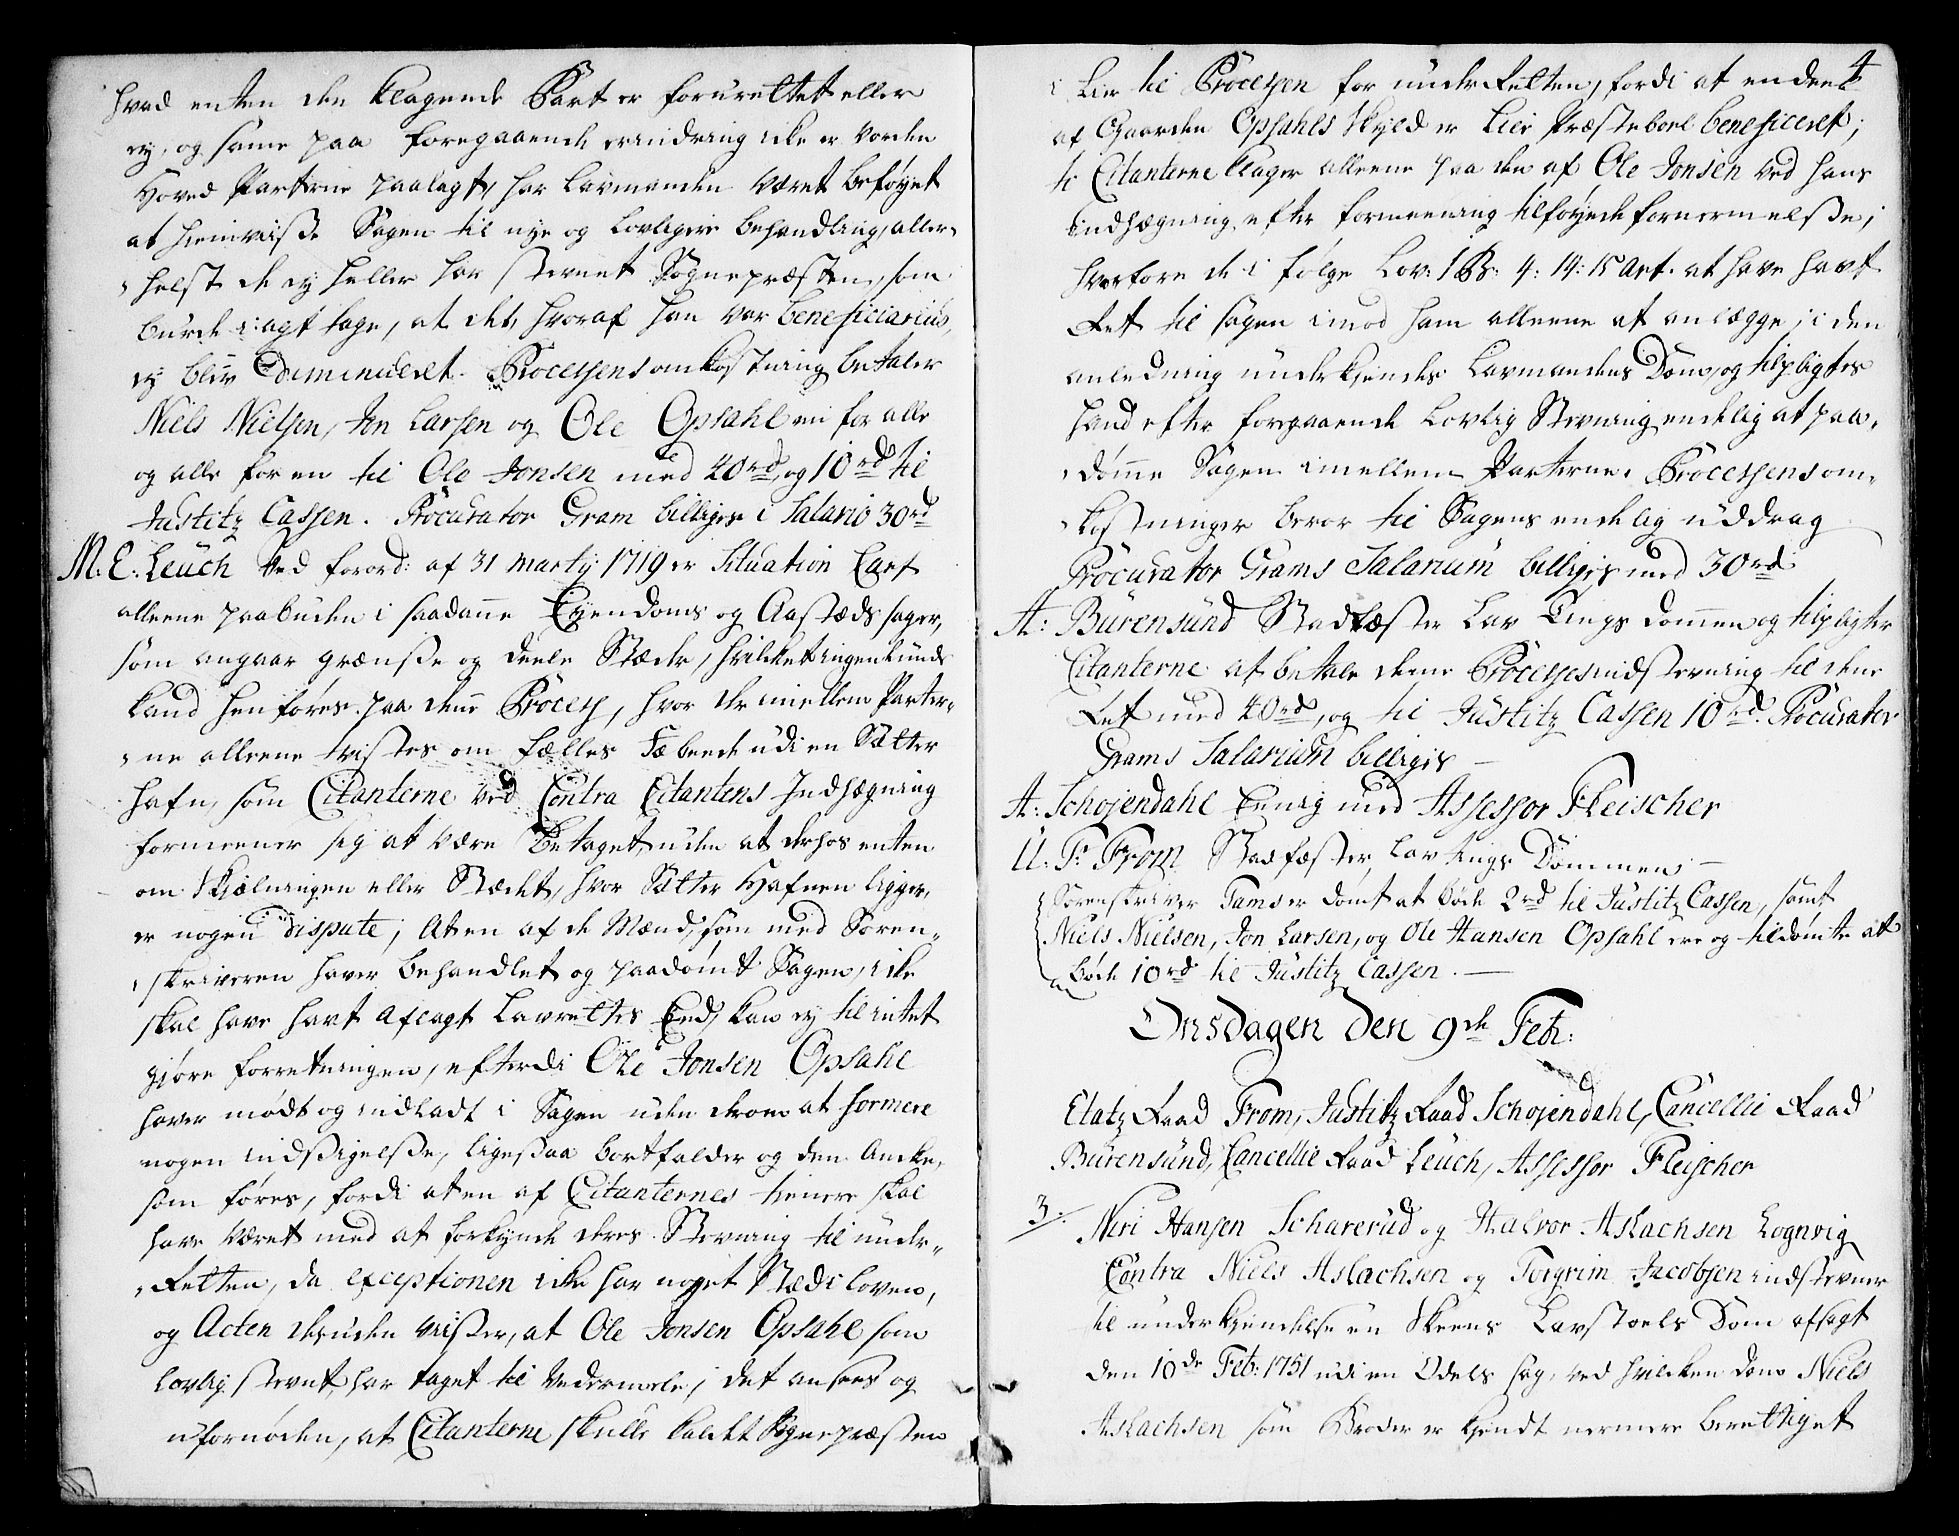 hvad enten den klagende Part er forurettet eller
ey, og samme paa foregaaende erindring icke er vorden
Hoved Parterne paalagt, har Lavmanden været beføyet
at hiemvisse Sagen til nye og lovligere behandling, aller-
helst de ey heller har stevnet Sognepræsten, som
burde i agt tage, at det, hvoraf han var beneficiarius,
ey blev diminueret. Processens omkostning betaler
Niels Nielsen, Jon Larsen og Ole Opsahl een for alle
og alle for en til Ole Jonsen med 40 rd, og 10 rd til
Justitz Cassen. Procurator Gram billiges i Salario 30 rd
M. E. Leuch Ved forord: af 31 Marty 1719 er Situation Cart
alleene paabuden i saadanne Eyendoms og Aastæds sager,
som angaar grændse og deele Stæde, hvilcket ingenlunde
kand henføres paa denne Process, hvor der imellem Parter-
ne alleene tvistes om fælles Fæbeede udi en Sætter
hafn, som Citanterne ved Contra Citantens Indhægning
formeener sig at være betaget, uden at derhos enten
om Skiælningen eller Stædet, hvor Sætter Hafnen ligger,
er nogen dispute; At en af de Mænd, som med Soren-
skriveren haver behandlet og paadømt Sagen, icke
skal have havt aflagt Lavrettes Eed, kan ey til intet
giøre forretningen, efterdi Ole Jonsen Opsahl
haver mødt og indladt i Sagen uden derom at formere
nogen indsigelse, ligesaa bortfalder og den Ancke,
som føres, fordi at en af Citanternes tienere skal
have været med at forkynde deres Stevning til under-
Retten, da exceptionen icke har noget Stæd i loven,
og Acten desuden viser, at Ole Jonsen Opsahl som
lovlig stevnt, har taget til Vedermæle; det ansees og
ufornøden, at Citanterne skulle kaldet Sognepræsten
4
i Lier til Processen for underRetten, fordi at en deel
af Gaarden Opsahls Skyld er Lier Præstebord beneficeret;
ti Citanterne klager alleene paa den af Ole Jonsen ved hans
Indhægning efter formeening tilføyede fornærmelse;
hvorfore de i følge Lov: 1 B: 4: 14: 15 Art. at have havt
Ret til sagen imod ham alleene at anlægge; i den
anledning underkiendes Lavmandens Dom, og tilpligtes
hand efter foregaaende lovlig Stevning endelig at paa-
dømme Sagen imellem Parterne. Processens om-
kostninger beror til Sagens endelig uddrag
Procurator Grams Salarium billiges med 30 rd
A: Bürensund Stadfæster Lav Tings dommen og tilpligter
Citanterne at betale denne Processes indstevning til denne
Ret med 40 rd, og til Justitz Cassen 10 rd. Procurator
Grams Salarium billiges —
A: Schojendahl Eenig med Assessor Fleischer
U. P: From Stadfæster Lav tings Dommen —
Sorenskriver Tams er dømt at bøde 2 rd til Justitz Cassen, samt
Niels Nielsen, Jon Larsen, og Ole Hansen Opsahl ere og tildømte at
bøde 10 rd til Justitz Cassen. —
Onsdagen den 9de Feb:
Etatz Raad From, Justitz Raad Schojendahl, Cancellie Raad
Bürensund, Cancellie Raad Leuch, Assessor Fleischer
3: Neri Hansen Scharerud og Halvor Aslachsen Lognvig
Contra Niels Aslachsen og Torgrim Jacobsen indstevner
til underkiendelse en Skeens Lavstoels Dom afsagt
den 10de Feb: 1751 udi en Odels sag, ved hvilcken dom Niels
Aslachsen som Broder er kiendt nermere berettiget